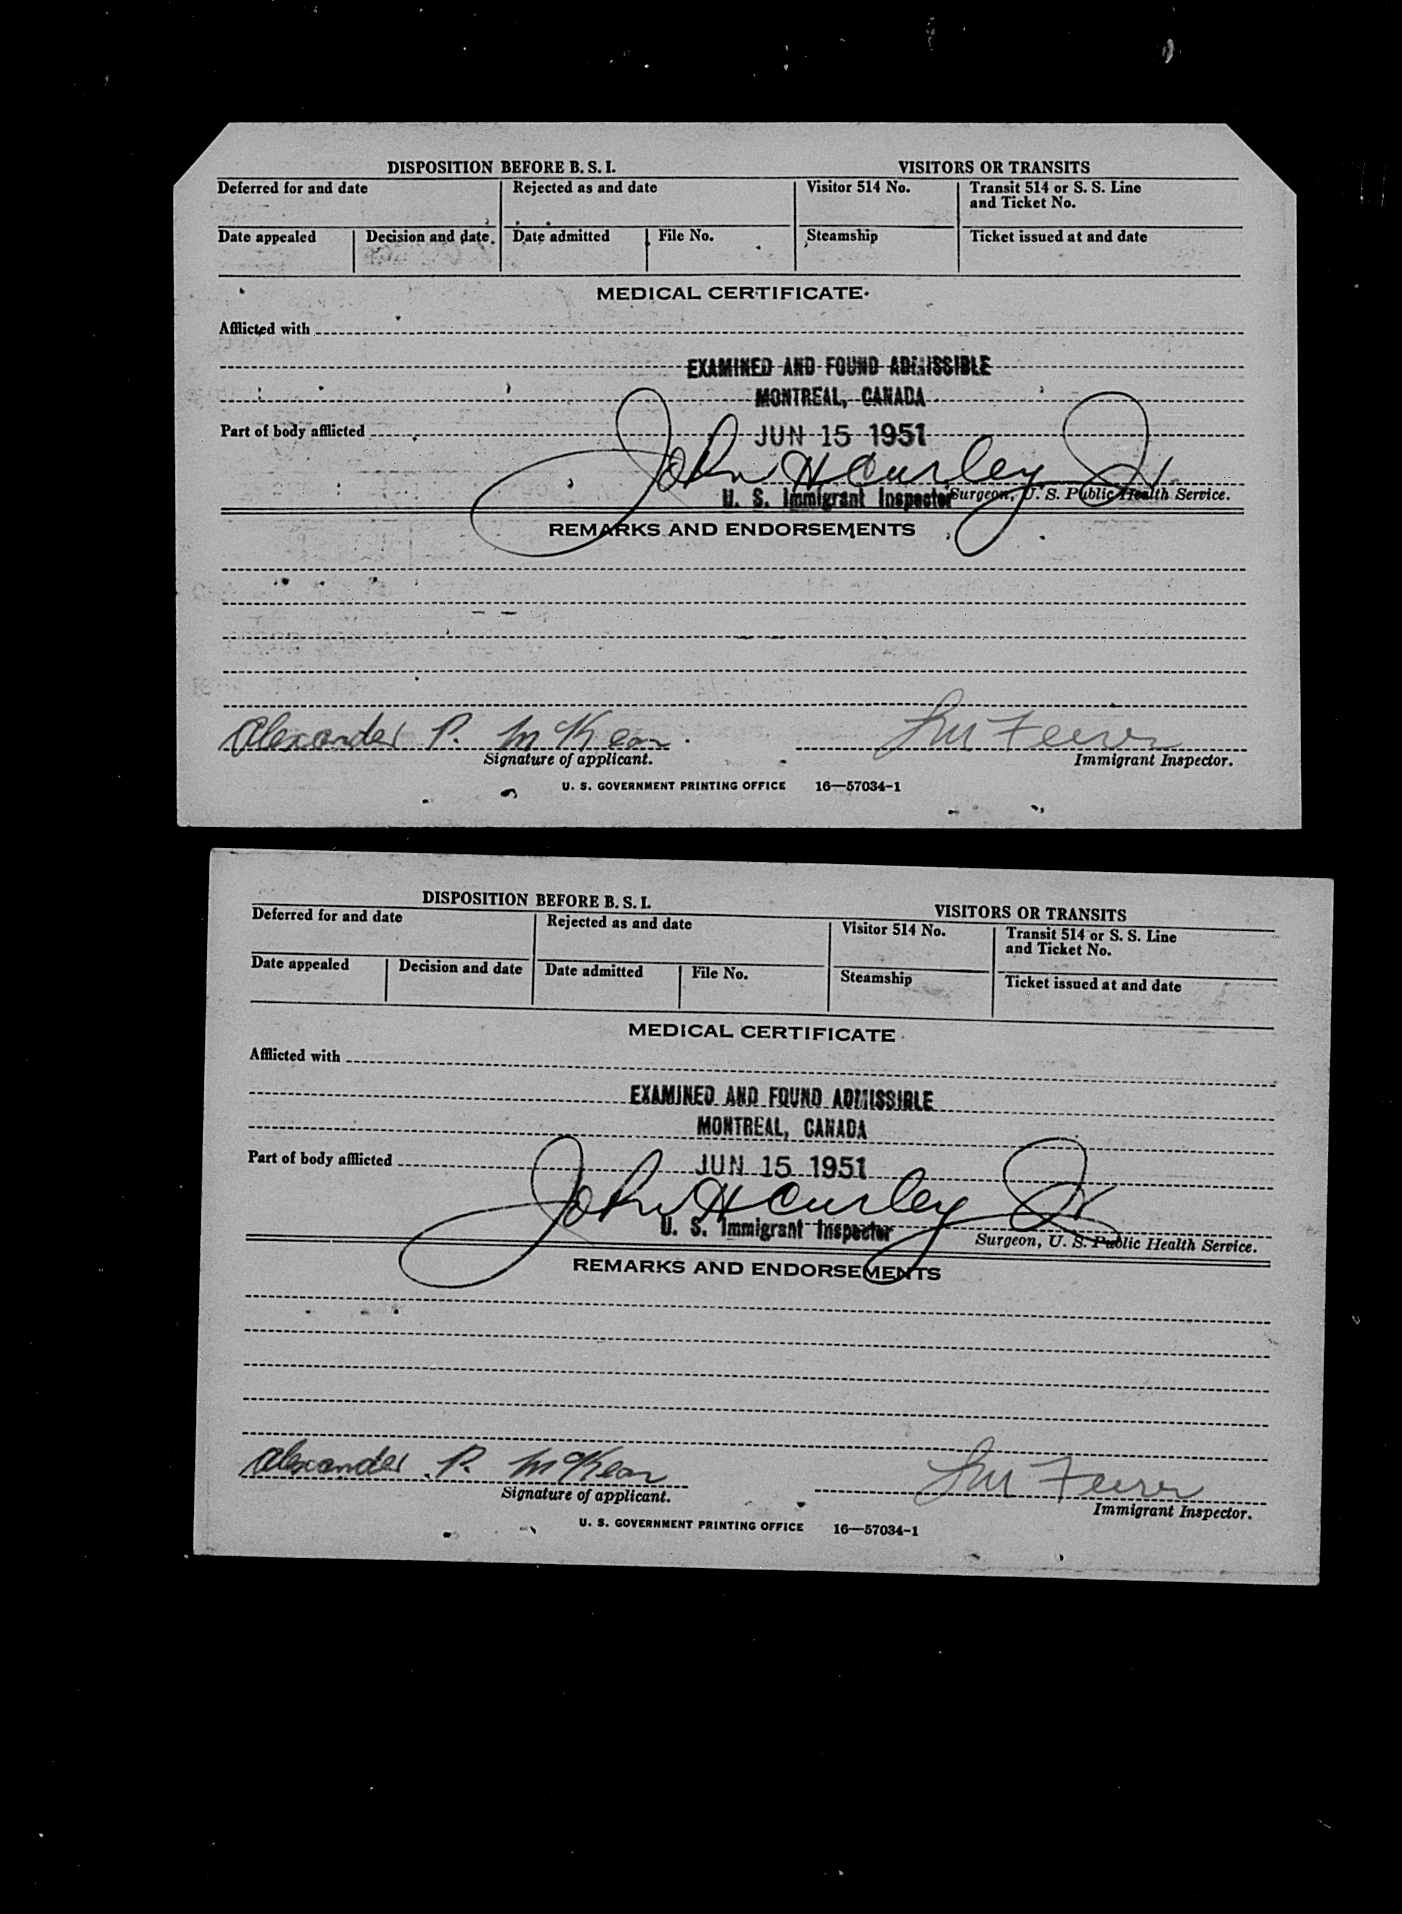 DISPOSITION BEFORE B. S. I. VISITORS OR TRANSITS
Deferred for and date Rejected as and date Visitor 514 No. Transit 514 or S. S. Line
and Ticket No.
Date appealed Decision and date Date admitted File No. Steamship Ticket issued at and date
MEDICAL CERTIFICATE
Afflicted with
EXAMINED AND FOUND ADMISSIBLE
MONTREAL, CANADA
Part of body afflicted JUN 15 1951
John H Curley Jr
U. S. Immigrant Inspector Surgeon, U. S. Public Health Service.
REMARKS AND ENDORSEMENTS
Alexander P. McKean
Signature of applicant. Immigrant Inspector.
U. S. GOVERNMENT PRINTING OFFICE 16—57034-1
DISPOSITION BEFORE B. S. I. VISITORS OR TRANSITS
Deferred for and date Rejected as and date Visitor 514 No. Transit 514 or S. S. Line
and Ticket No.
Date appealed Decision and date Date admitted File No. Steamship Ticket issued at and date
MEDICAL CERTIFICATE
Afflicted with
EXAMINED AND FOUND ADMISSIBLE
MONTREAL, CANADA
Part of body afflicted JUN 15 1951
John H Curley Jr
U. S. Immigrant Inspector Surgeon, U. S. Public Health Service.
REMARKS AND ENDORSEMENTS
Alexander P. McKean
Signature of applicant. Immigrant Inspector.
U. S. GOVERNMENT PRINTING OFFICE 16—57034-1